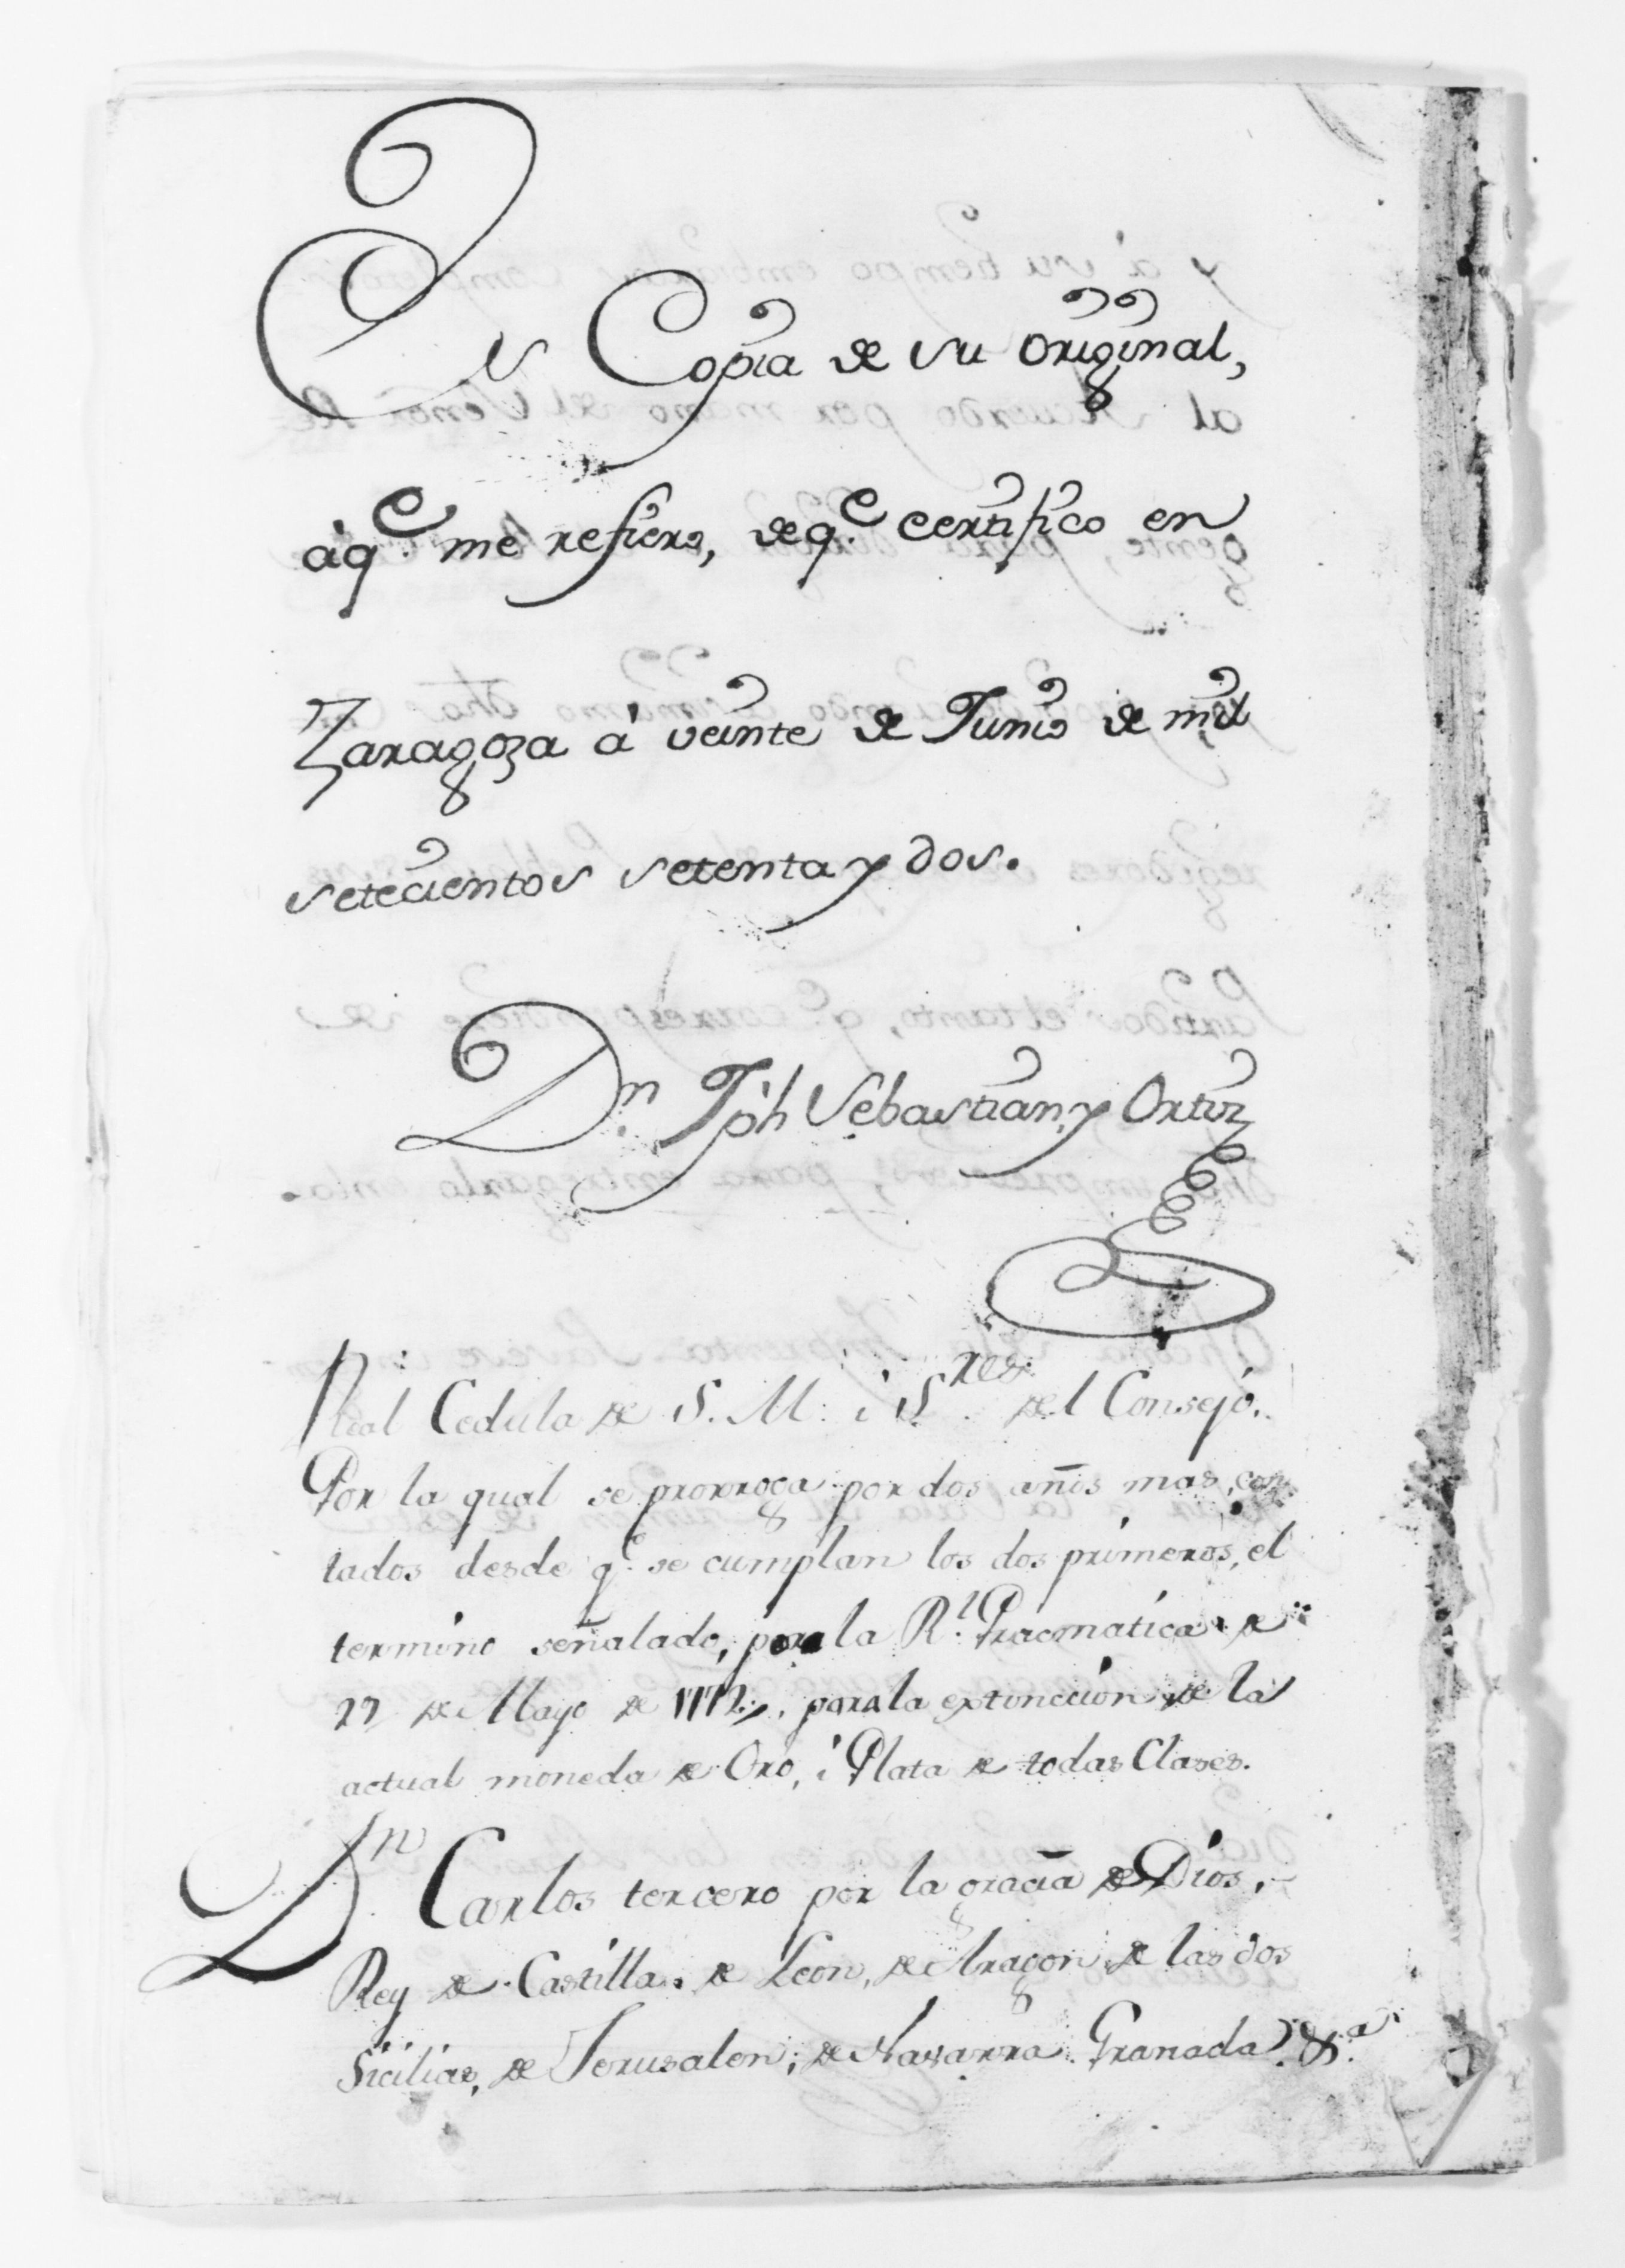 Es Copia de su original,
àq.e me refiero, deq.e certifico en
Zaragoza à veinte de Junio de mil
setecientos setenta y dos.
D.n Jph Sebastian y Ortiz
Real Cedula de S. M. i S.res del Consejo.
Por la qual se prorroga por dos años mas, con
tados desde q.e se cumplan los dos primeros, el
termino señalado, por la R.l Pracmatica de
29 de Mayo de 1772, para la extinccion de la
actual moneda de Oro, i Plata de todas Clases.
D.n Carlos tercero por la gracia de Dios,
Rey de Castilla, de Leon, de Aragon, de las dos
Sicilias, de Jerusalen, de Navarra, Granada &.a